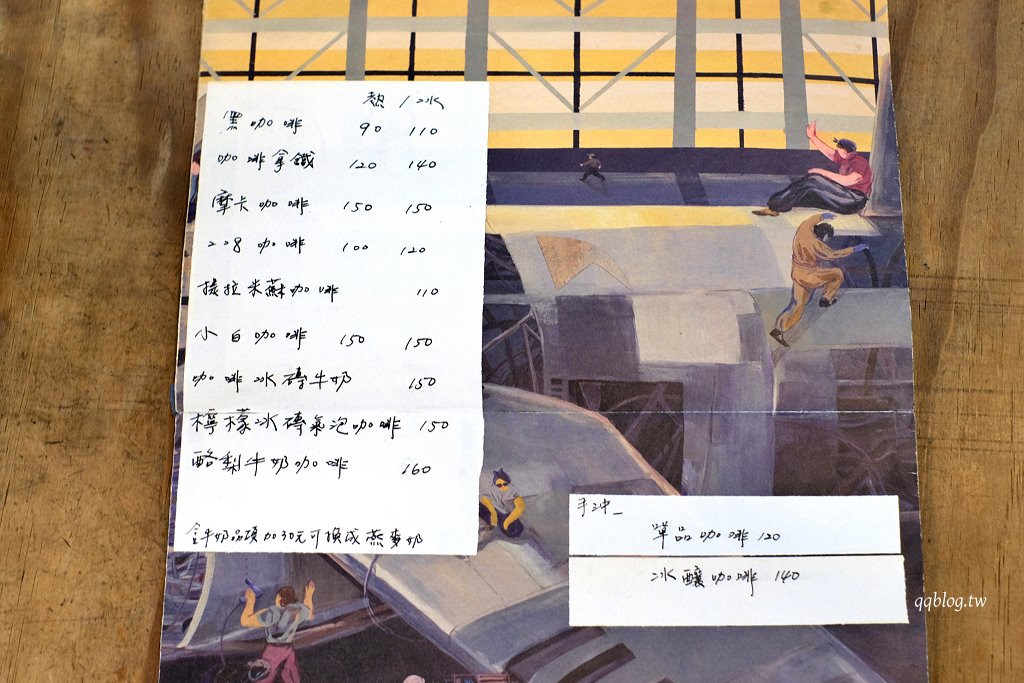 熱 / 冰
黑咖啡 90 110
咖啡拿鐵 120 140
摩卡咖啡 150 150
228咖啡 100 120
提拉米蘇咖啡 110
小白咖啡 150 150
咖啡冰磚牛奶 150
檸檬冰磚氣泡咖啡 150
酪梨牛奶咖啡 160
含牛奶品項加30元可換成燕麥奶
手沖_
單品咖啡 120
冰釀咖啡 140
qqblog.tw